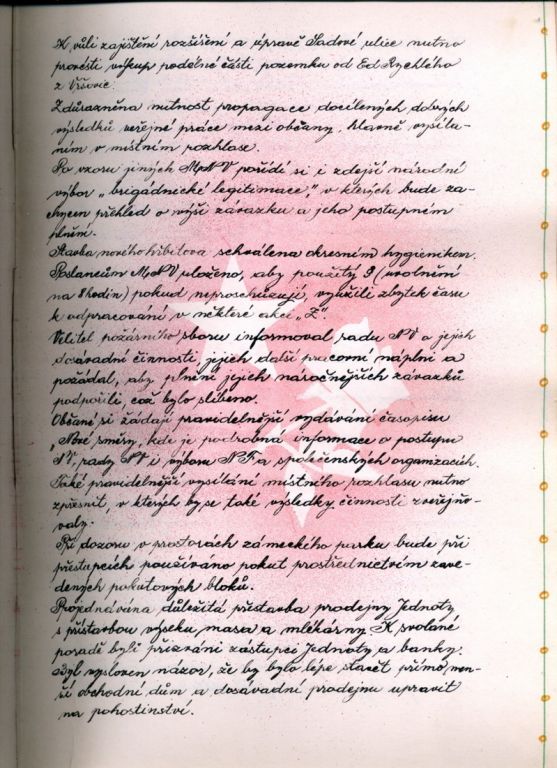 K vůli zajištění rozšíření a úpravě Sadové ulice nutno
provésti výkup podélné části pozemku od Ed Rychlého
z Vršovic.
Zdůrazněna nutnost propagace docílených dobrých
výsledků veřejné práce mezi občany, hlavně vysílá-
ním v místním rozhlase.
Po vzoru jiných MNV pořídí si i zdejší národní
výbor „brigádnické legitimace", v kterých bude za-
chycen přehled o výši závazku a jeho postupném
plnění.
Stavba nového hřbitova schválena okresním hygienikem.
Poslancům MNV uloženo, aby použitý P (uvolnění
na 8 hodin) pokud neproschůzují, využili zbytek času
k odpracování v některé akci „Z".
Velitel požárního sboru informoval radu NV o jejich
dosavadní činnosti, jejich další pracovní náplni a
požádal, aby plnění jejich náročnějších závazků
podpořili, což bylo slíbeno.
Občané si žádají pravidelnější vydávání časopisu
„Nové směry, kde je podrobná informace o postupu
NV, rady NV i výboru NF a společenských organizacích.
Také pravidelnější vysílání místního rozhlasu nutno
zpřesnit, v kterých by se také výsledky činnosti zveřejňo-
valy.
Při dozoru v prostorách zámeckého parku bude při
přestupcích používáno pokut prostřednictvím zave-
dených pokutových bloků.
Projednávána důležitá přístavba prodejny Jednoty
s přístavbou výseku masa a mlékárny. K svolané
poradě byli přizváni zástupci Jednoty a banky.
Byl vysloven názor, že by bylo lépe stavět přímo, men-
ší obchodní dům a dosavadní prodejnu upravit
na pohostinství.